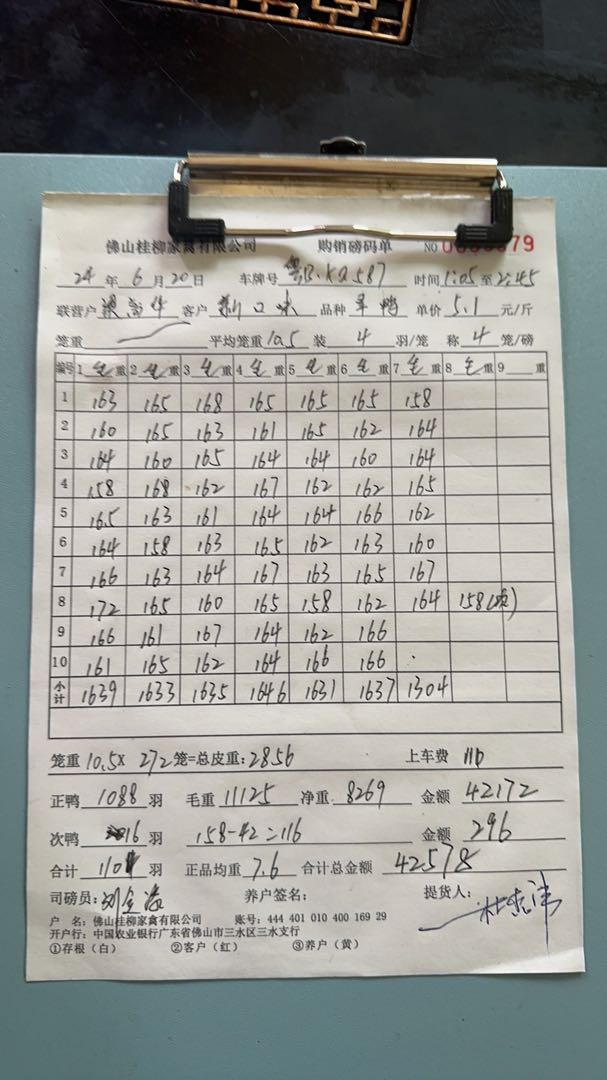 佛山桂柳家禽有限公司 购销磅码单 NO
24 年 6 月 20 日 车牌号 粤B·KQ587 时间 1:05 至 2:45
联营户 客户 新口味 品种 单价 5.1 元/斤
笼重 平均笼重 10.5 装 4 羽/笼 称 4 笼/磅
编号 1 毛 重 2 毛 重 3 毛 重 4 毛 重 5 毛 重 6 毛 重 7 毛 重 8 毛 重 9 重
1 163 165 168 165 165 165 158
2 160 165 163 161 165 162 164
3 164 160 165 164 164 160 164
4 158 168 162 167 162 162 165
5 165 163 161 164 164 166 162
6 164 158 163 165 162 163 160
7 166 163 164 167 163 165 167
8 172 165 160 165 158 162 164 158(次)
9 166 161 167 164 162 166
10 161 165 162 164 166 166
小计 1639 1633 1635 1646 1631 1637 1304
笼重 10.5× 272 笼=总皮重: 2856 上车费 110
正鸭 1088 羽 毛重 11125 净重 8269 金额 42172
次鸭 16 羽 158-42=116 金额 296
合计 1104 羽 正品均重 7.6 合计总金额 42578
司磅员: 养户签名: 提货人:
户 名: 佛山桂柳家禽有限公司 账号: 444 401 010 400 169 29
开户行: 中国农业银行广东省佛山市三水区三水支行
①存根（白） ②客户（红） ③养户（黄）